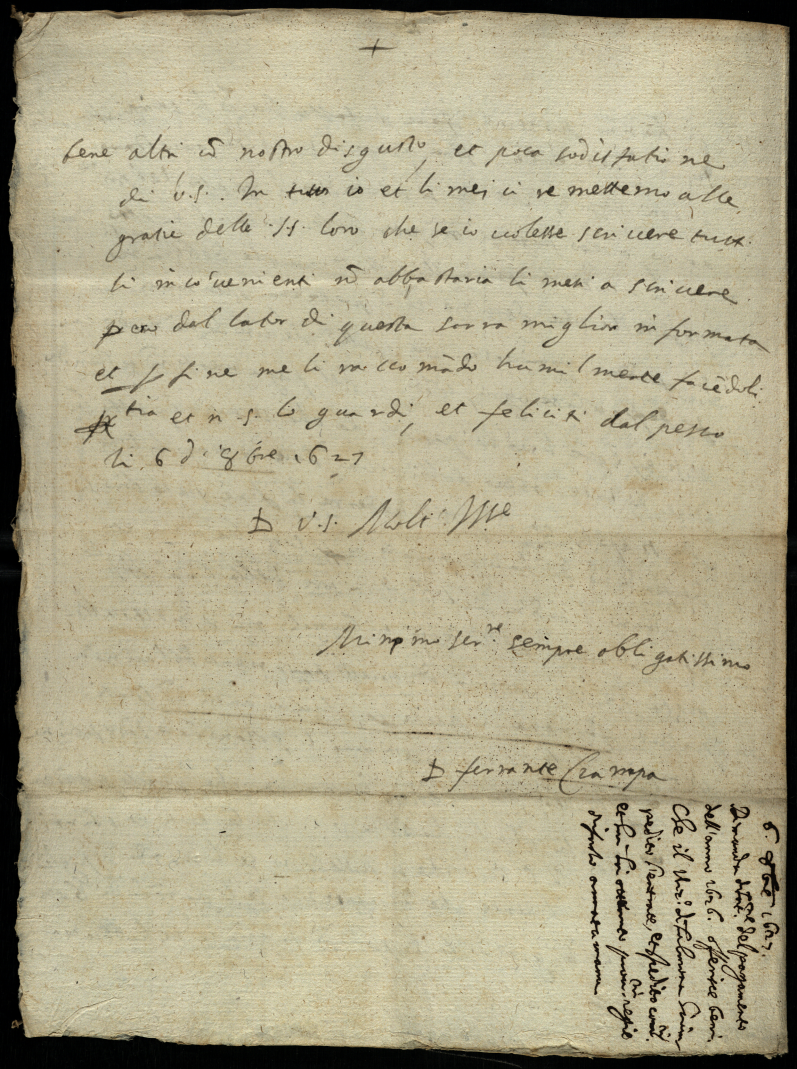 +
bene altri cō nostro disgusto, et poca sodisfatione
di V.S. In tutto io et li mei ci remettemo alle
gratie delle SS. loro che se io volesse scrivere tutti
li incōvenienti nō abbastaria li mesi a scrivere
però dal lator di questa sarra miglior informata
et per fine me li raccomādo humilmente facēdoli
et n. s. lo guardi, et feliciti dal pesco
li 6 di 8bre 1627
D V.S. Molt' Ill.re
Minimo ser.re sempre obligatissimo
D ferrante Ciampa
6. 8bre 1627.
Dimanda del pagamento
dell'anno 1626. offerisce beni
che il